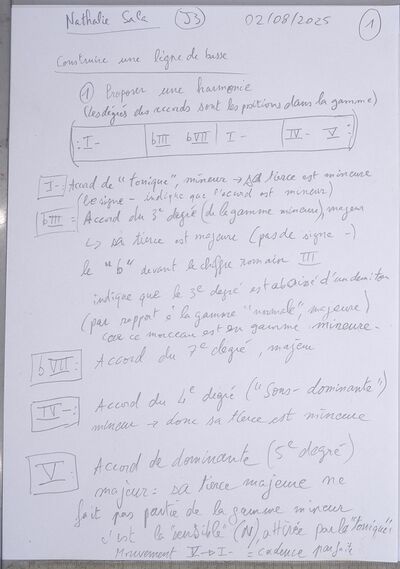 Nathalie Sala J3 02/08/2025 1
Construire une ligne de basse
1 Proposer une harmonie
(les degrés des accords sont les positions dans la gamme)
: I- | bIII bVII | I- | IV- V :
I-: Accord de "tonique", mineur → sa tierce est mineure
(le signe - indique que l'accord est mineur)
bIII = Accord du 3e degré (de la gamme mineure) majeur
↳ sa tierce est majeure (pas de signe -)
le "b" devant le chiffre romain III
indique que le 3e degré est abaissé d'un demi ton
(par rapport à la gamme "normale", majeure)
car ce morceau est en gamme mineure-
bVII: Accord du 7e degré, majeur
IV-: Accord du 4e degré ("Sous-dominante")
mineur → donc sa tierce est mineure
V: Accord de dominante (5e degré)
majeur: sa tierce majeure ne
fait pas partie de la gamme mineur
c'est la "sensible" (VII) attirée par la "tonique"
Mouvement V → I- = cadence parfaite